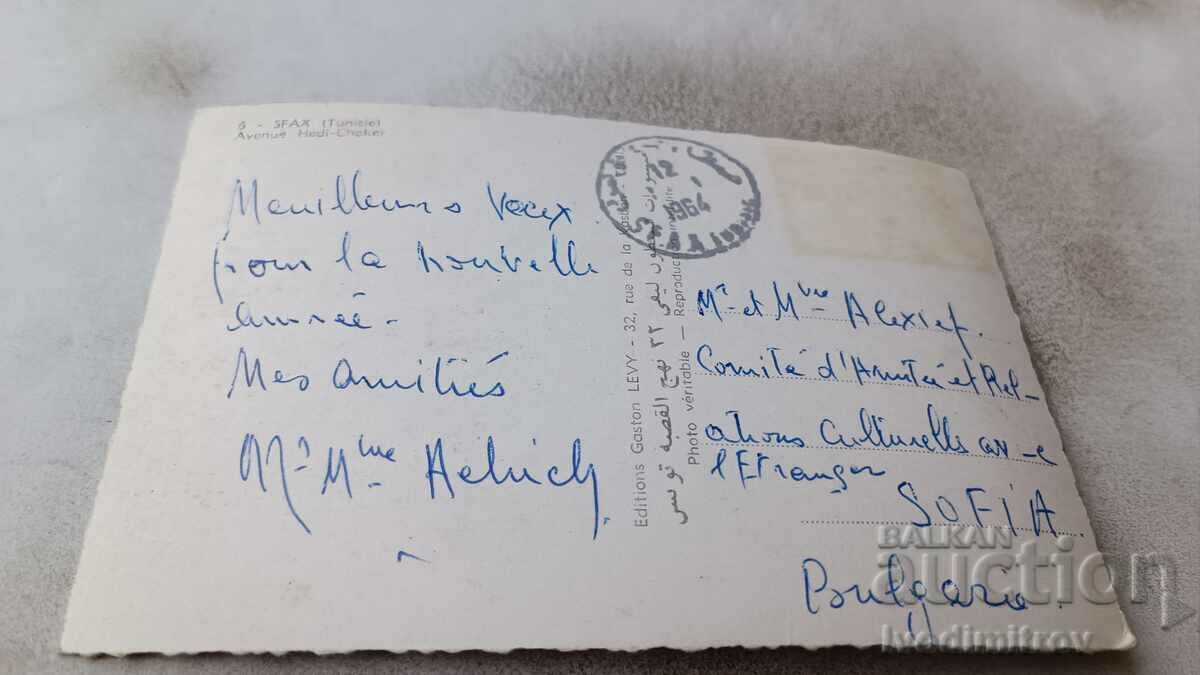 6 - SFAX (Tunisie)
Avenue Hedi-Chaker
Meuilleurs Vœux
pour la nouvelle
année -
Mes amitiés
Mr Mme
Editions Gaston LEVY - 32, rue de la Kasbah
٣٢ نهج القصبة تونس
Photo véritable — Reproduction
1964
Mr et Mme Alexief.
Comité d'Amitié et Rel-
ations Culturelles av-e
l'Etranger
SOFIA
Boulgarie
BALKAN
auction
Ivodimitrov